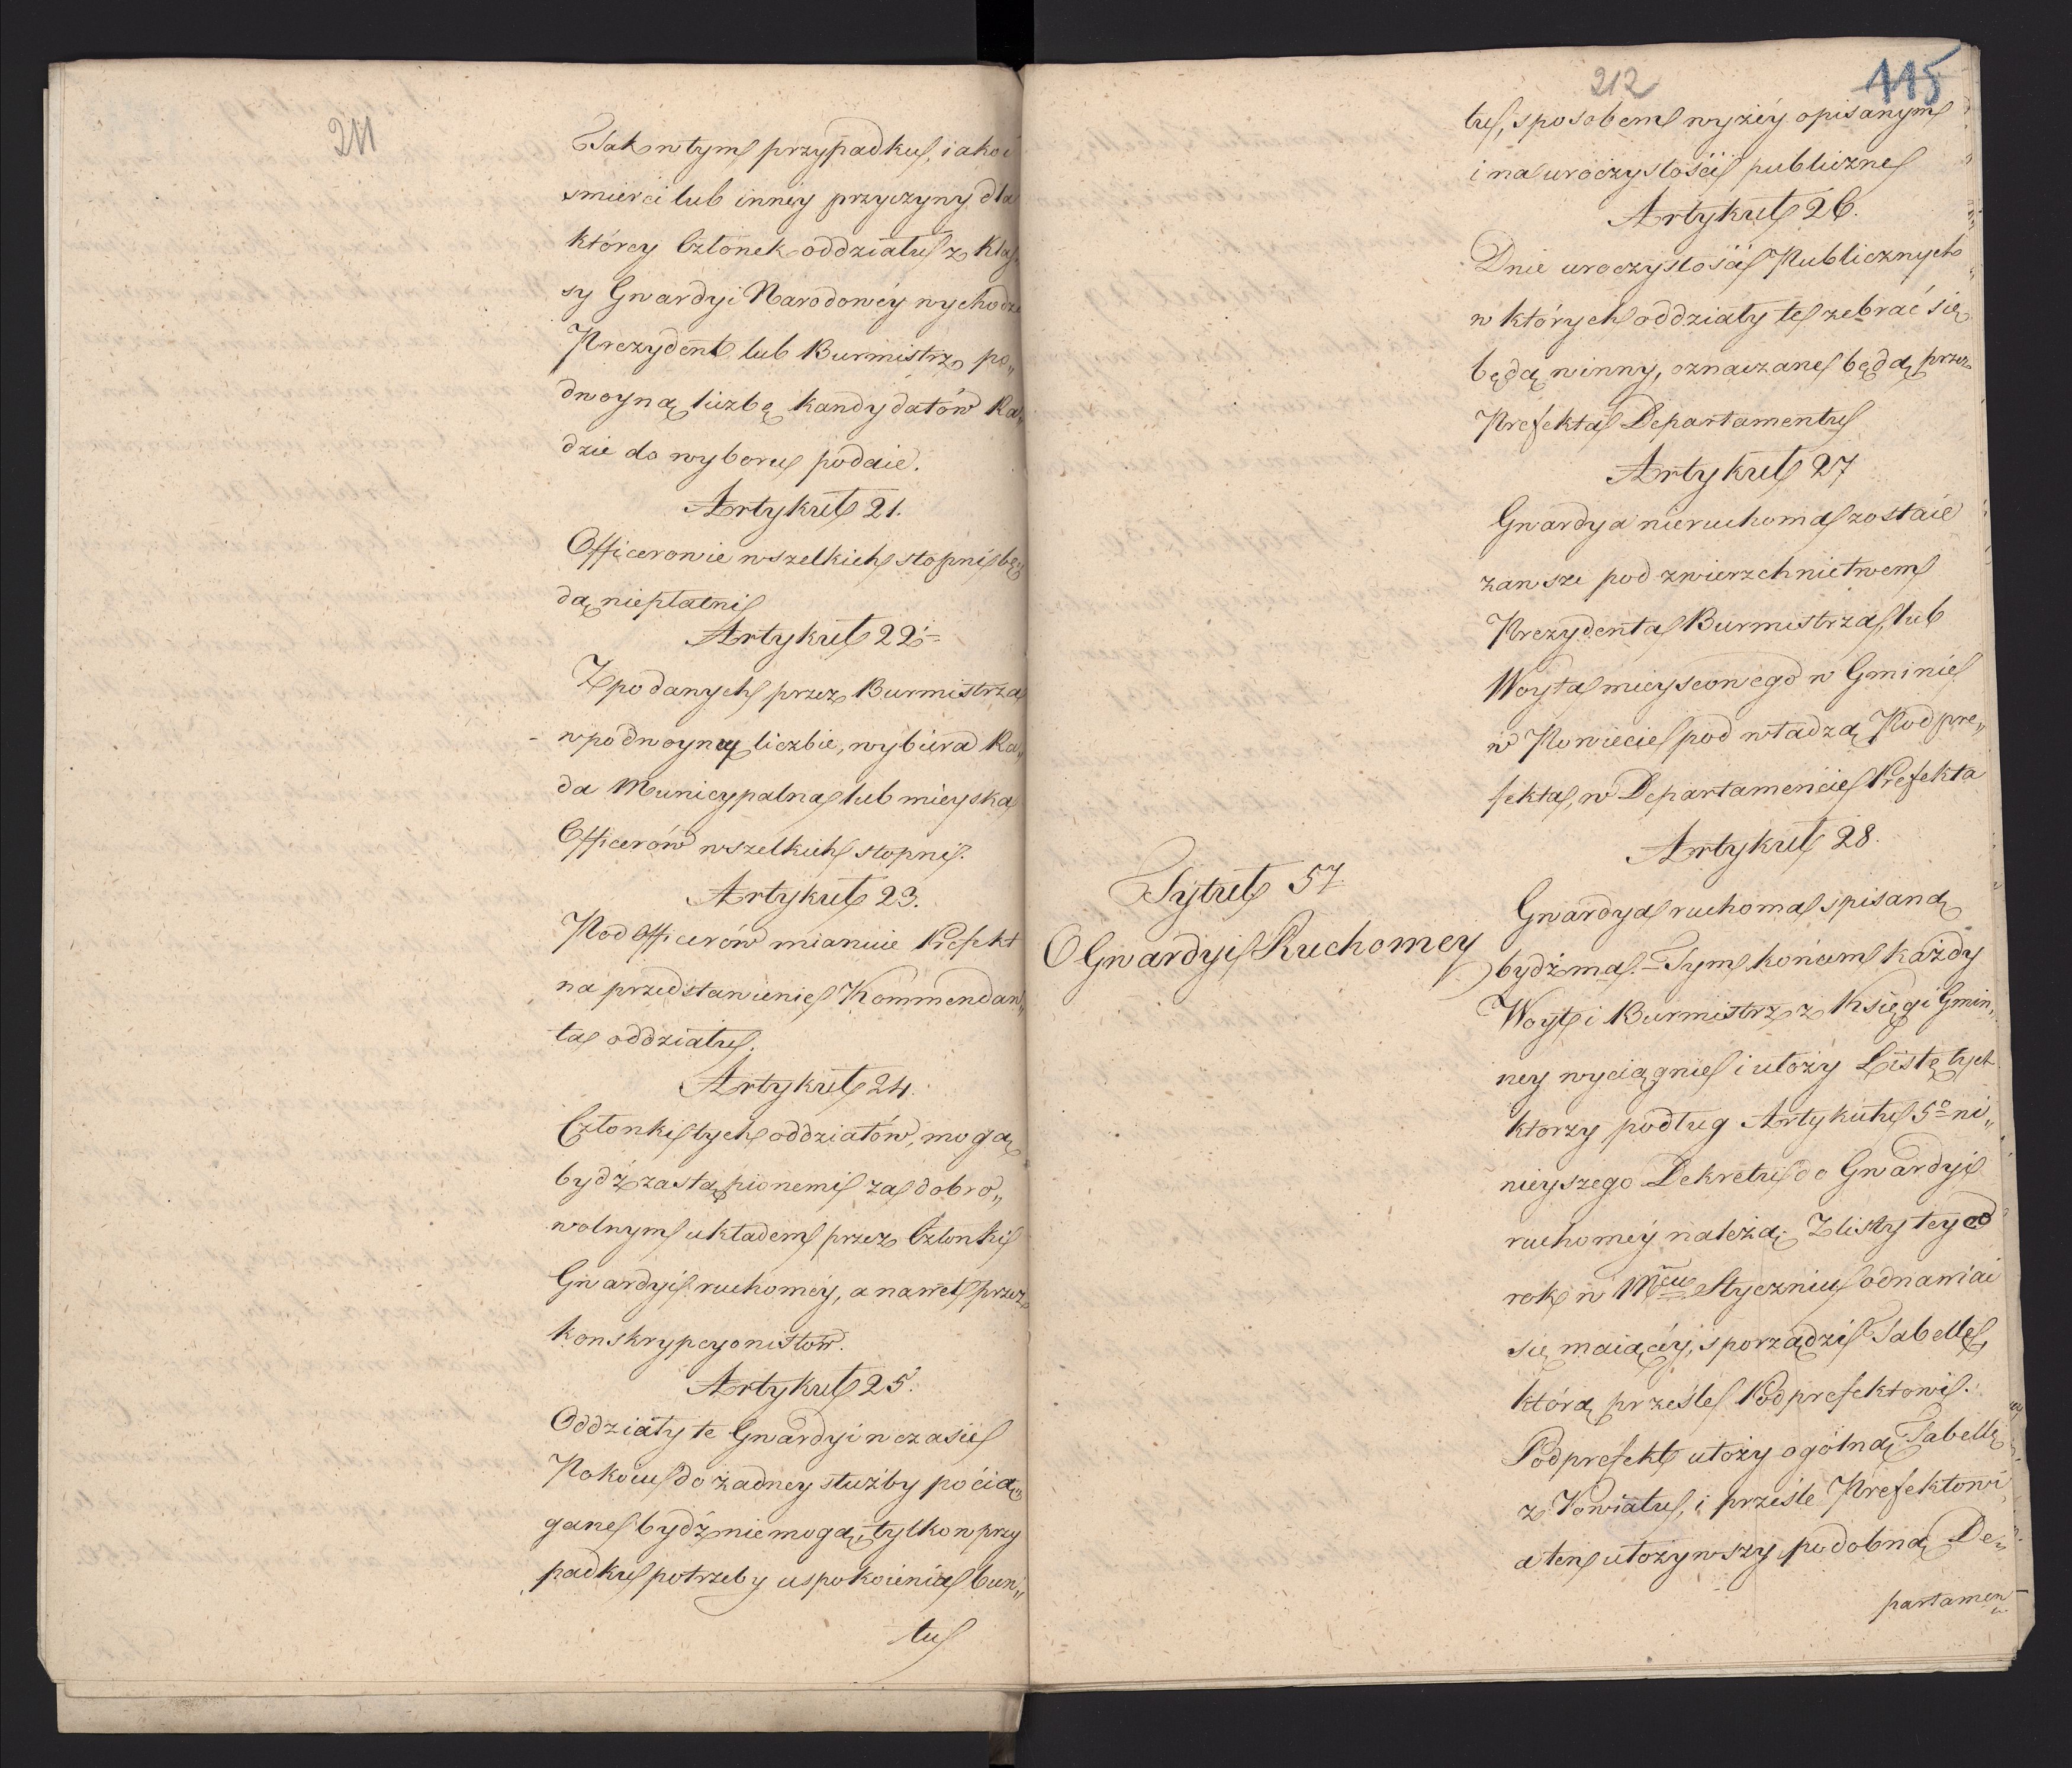 211
Tak w tym przypadku, iako i
smierci lub innéy przyczyny dla
którey Członek oddziału z Klas„
sy Gwardyi Narodowéy wychodzi
Prezydent lub Burmistrz po„
dwoyną liczbę kandydatów Ra„
dzie do wyboru podaie.
Artykuł 21.
Officerowie wszelkich stopni bę„
dą niepłatni
Artykuł 22.
Z podanych przez Burmistrza
w podwoyney liczbie, wybiera Ra„
da Municypalna lub mieyska
Officerów wszelkich stopni.
Artykuł 23.
Pod Officerów mianuie Prefekt
na przedstawienie Kommendan„
ta oddziału.
Artykuł 24.
Członki tych oddziałów, mogą
bydź zastąpionemi za dobro„
wolnym układem przez Członki
Gwardyi ruchoméy, a nawet przez
konskrypcyonistów.
Artykuł 25.
Oddziały te Gwardyi w czasie
Pokoiu do żadney służby pocią„
gane bydź nie mogą, tylko w przy
padku potrzeby uspokoienia bun„
tu
212
115
tu, sposobem wyżéy opisanym
i na uroczystości publiczne
Artykuł 26.
Dnie uroczystości Publicznych
w których oddziały te zebrać się
będą winny, oznaczane będą przez
Prefekta Departamentu
Artykuł 27
Gwardya nieruchoma zostaie
zawsze pod zwierzchnictwem
Prezydenta Burmistrza, lub
Woyta mieyscowego w Gminie
w Powiecie pod władzą Podpre„
fekta, w Departamencie Prefekta
Artykuł 28.
Tytuł 5ty
O Gwardyi Ruchomey
Gwardya ruchoma spisaną
bydź ma. = Tym końcem każdy
Woyt i Burmistrz z Księgi Gmin„
ney wyciągnie i ułoży Listę tych
ktorzy podług Artykułu 5º ni„
nieyszego Dekretu do Gwardyi
ruchoméy należą. Z listy tey co
rok w Mcu Styczniu odnawiać
się maiącéy, sporządzi Tabellę,
którą prześle Podprefektowi.
Podprefekt ułoży ogólną Tabellę
z Powiatu, i prześle Prefektowi
a ten ułożywszy podobną De„
partamen„